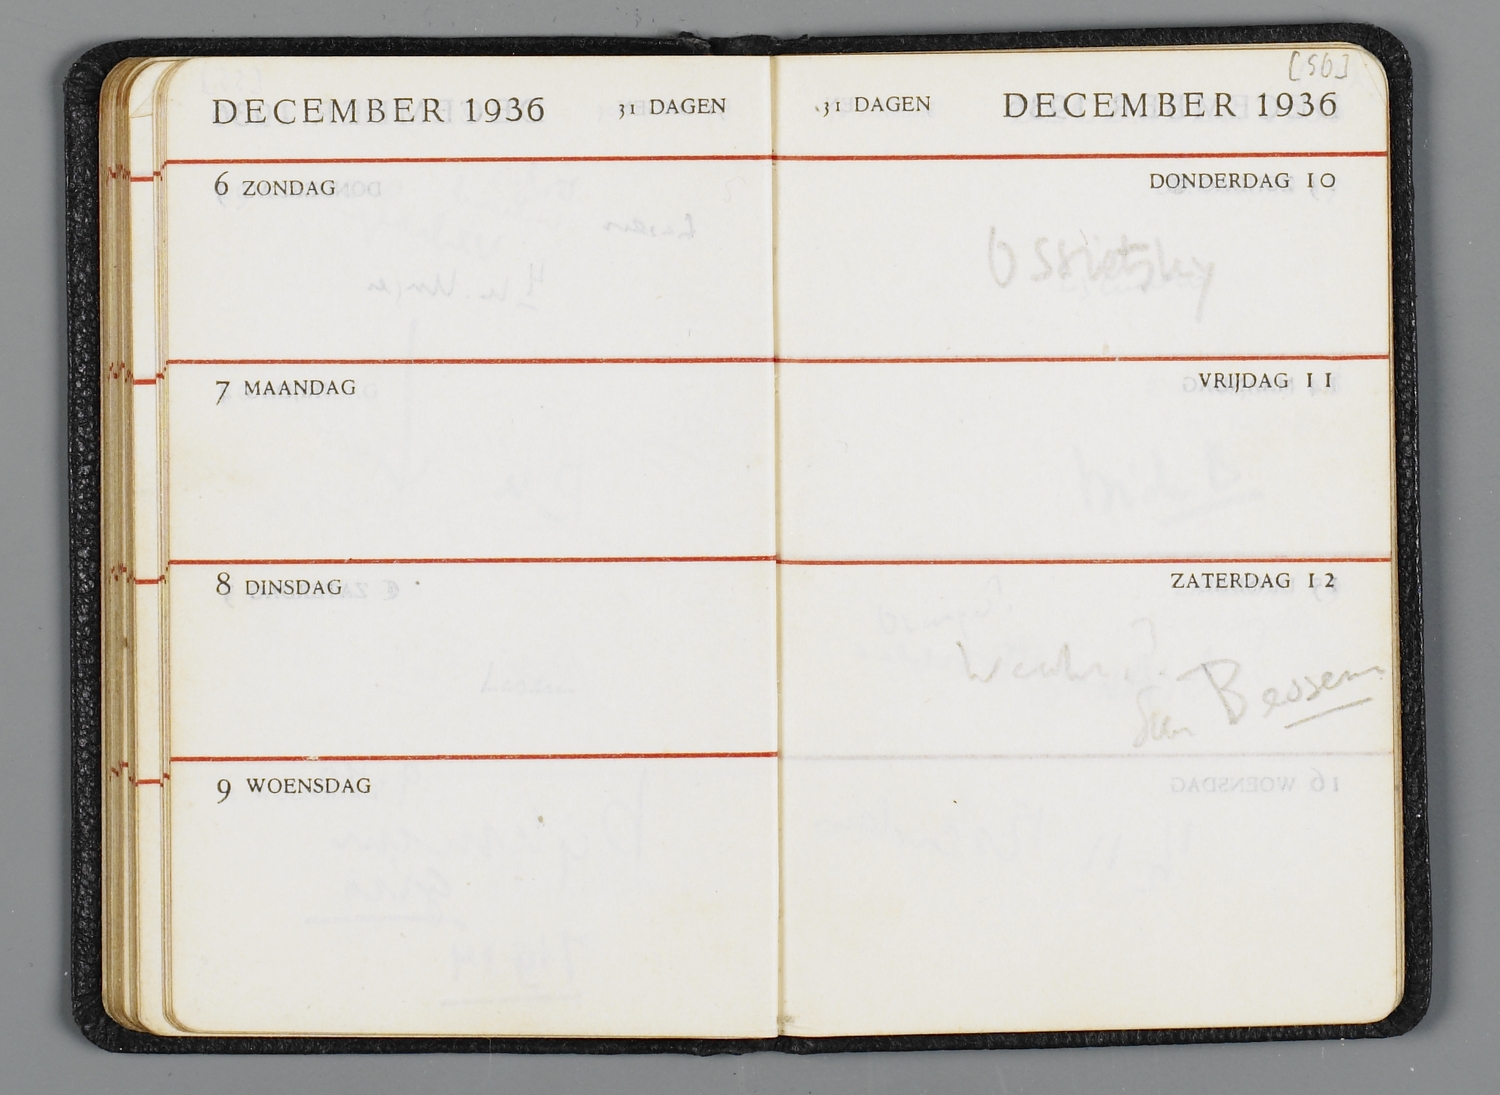 DECEMBER 1936 31 DAGEN
6 ZONDAG
7 MAANDAG
8 DINSDAG
9 WOENSDAG
[56]
31 DAGEN DECEMBER 1936
DONDERDAG 10
Ossietzky
VRIJDAG 11
ZATERDAG 12
Bessem